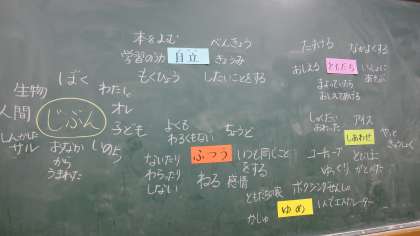 本をよむ
べんきょう
学習の力
自立
きょうみ
もくひょう
したいことをする
たすける
なかよくする
おしえる
ともだち
いっしょに
あそぶ
まよっていたら
おしえてあげる
生物
ぼく
わたし
人間
じぶん
オレ
子ども
しんかした
サル
おなか
から
うまれた
いのち
よくも
わるくもない
ちょうど
ないたり
わらったり
しない
ふつう
いつも同じこと
をする
ねる
感情
しゅくだい
おわった
アイス
しあわせ
やっと
きゅうしょく
ゆっくり
ともだちの家
ボクシングせんしゅ
かしゅ
ゆめ
1人でエスカレーター